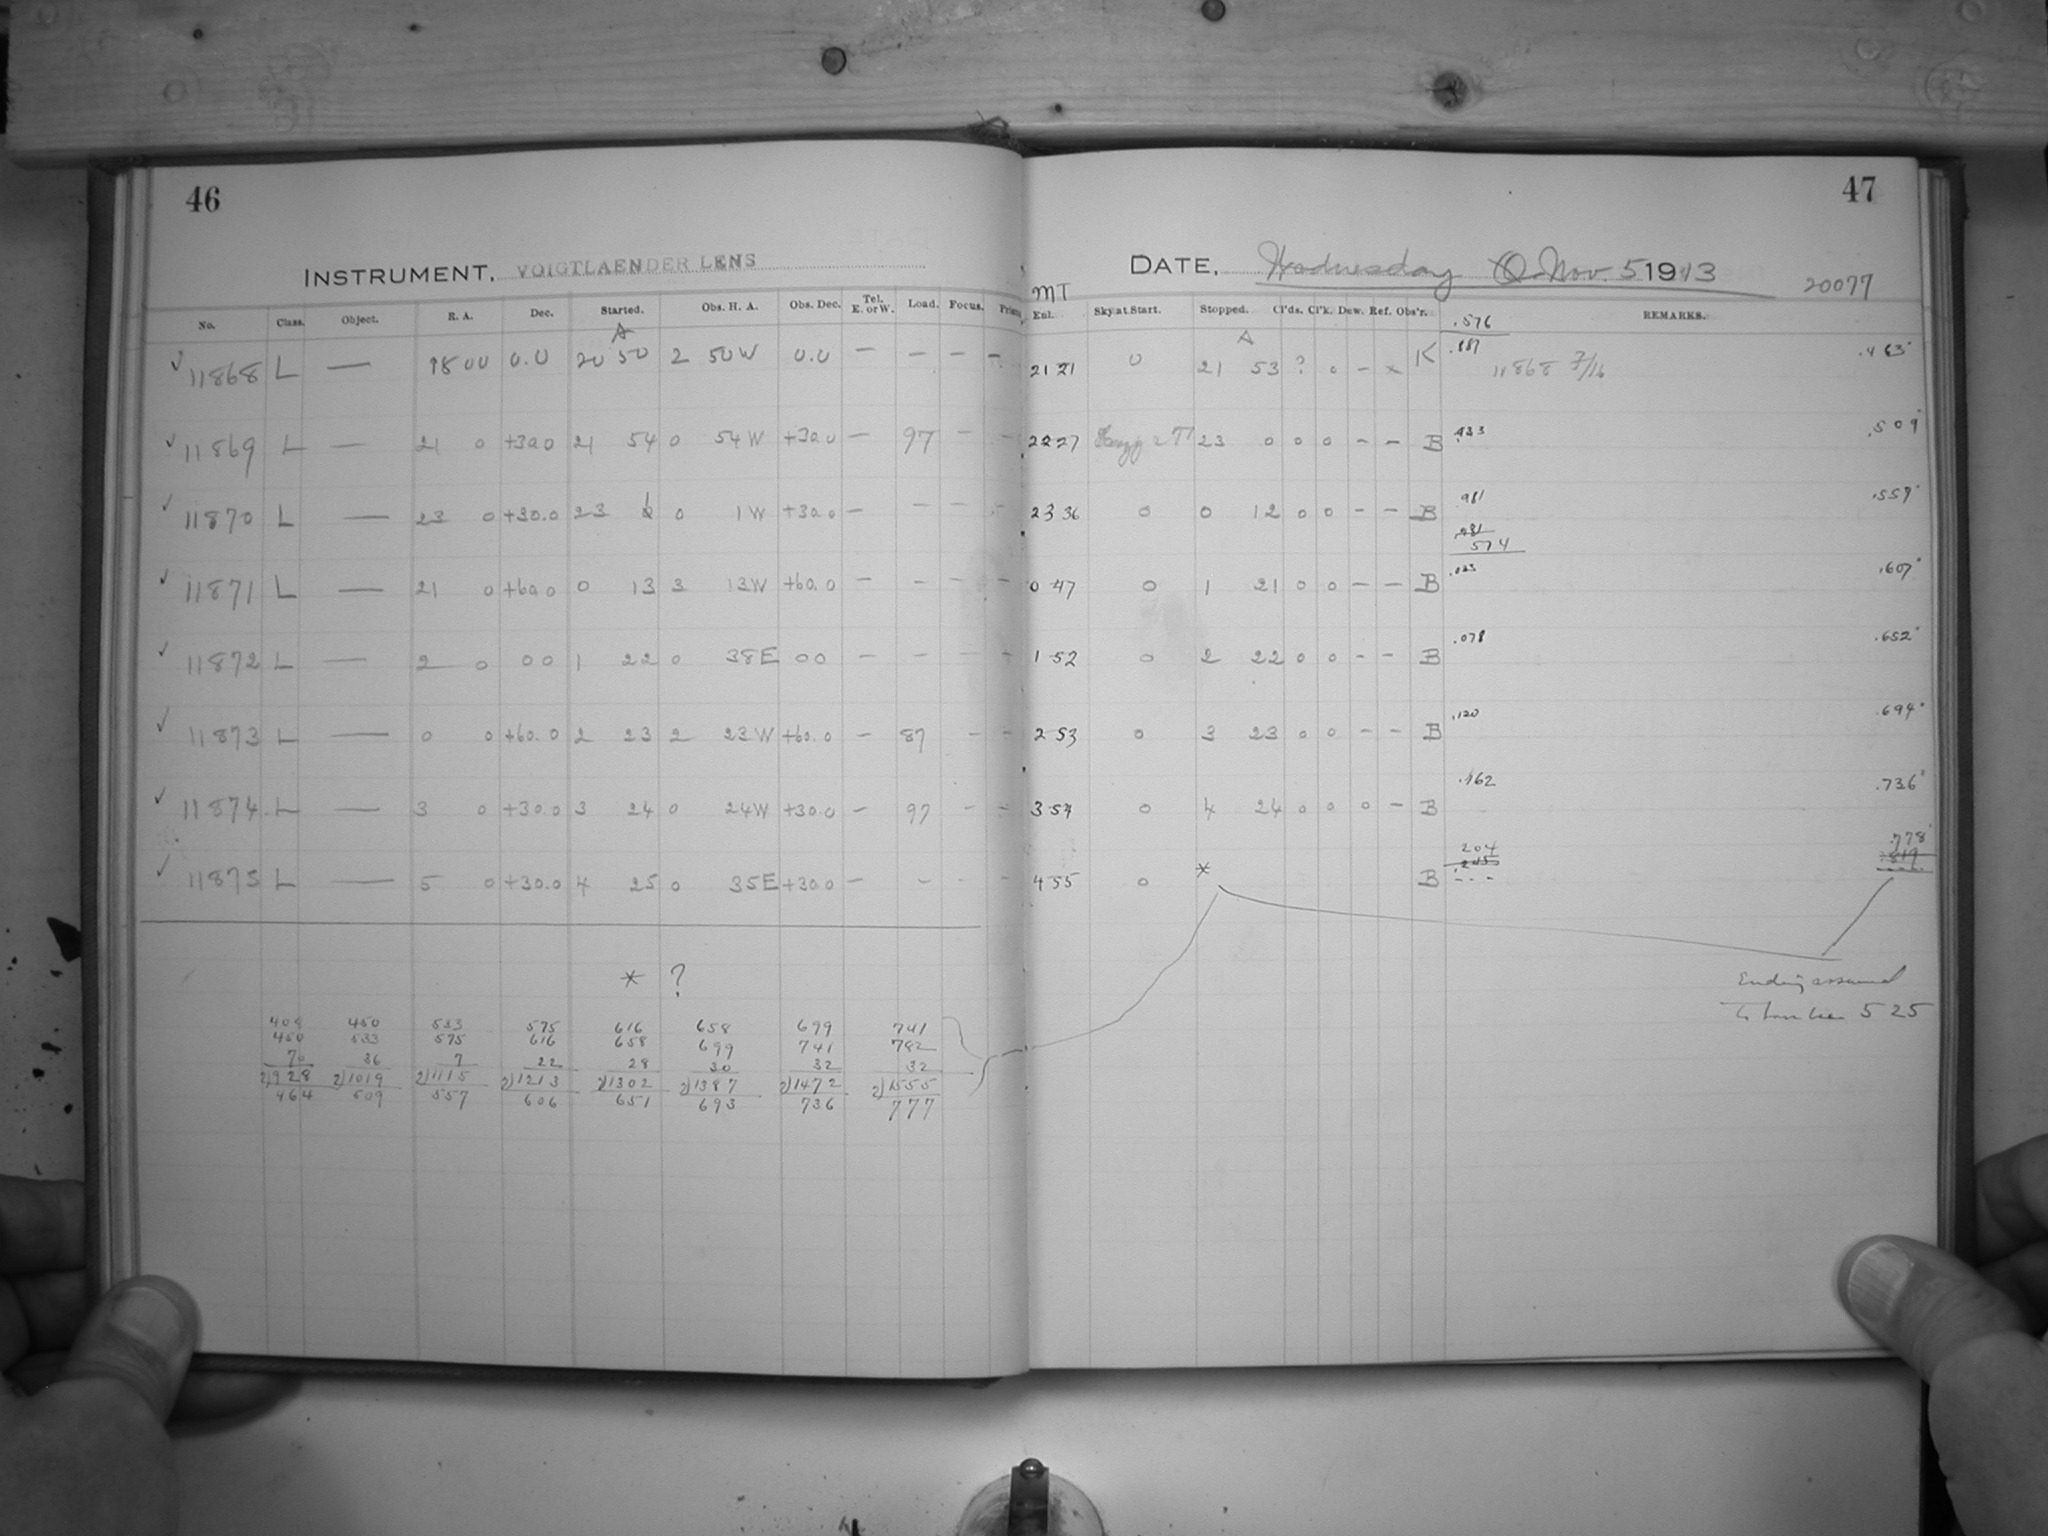 46
INSTRUMENT. VOIGTLAENDER LENS
No. Class. Object. R. A. Dec. Started. Obs. H. A. Obs. Dec. Tel. E. or W. Load. Focus. Prisms
A
✓ 11868 L — 18 00 0.0 20 50 2 50 W 0.0 — — — —
✓ 11869 L — 21 0 +30.0 21 54 0 54 W +30.0 — 97 — —
✓ 11870 L — 23 0 +30.0 23 1 0 1 W +30.0 — — — —
✓ 11871 L — 21 0 +60.0 0 13 3 13 W +60.0 — — — —
✓ 11872 L — 2 0 0 0 1 22 0 38 E 0 0 — — — —
✓ 11873 L — 0 0 +60.0 2 23 2 23 W +60.0 — 87 — —
✓ 11874 L — 3 0 +30.0 3 24 0 24 W +30.0 — 97 — —
✓ 11875 L — 5 0 +30.0 4 25 0 35 E +30.0 — — — —
* ?
408 450 533 575 616 658 699 741
450 533 575 616 658 699 741 782
70 36 7 22 28 30 32 32
2)928 2)1019 2)1115 2)1213 2)1302 2)1387 2)1472 2)1555
464 509 557 606 651 693 736 777
47
DATE, Wednesday Nov. 5 1913
20077
MT
Enl. Sky at Start. Stopped. Cl'ds. Cl'k. Dew. Ref. Obs'r. REMARKS.
.576
A
21 21 0 21 53 ? 0 - x K .887 11868 7/16 .463
22 27 23 0 0 0 - - B .933 .509
23 36 0 0 12 0 0 - - B .981 .557
.281
574
0 47 0 1 21 0 0 - - B .033 .607
1 52 0 2 22 0 0 - - B .078 .652
2 53 0 3 23 0 0 - - B .120 .694
3 54 0 4 24 0 0 0 - B .162 .736
4 55 0 * B 204 .778
Ending assumed
to have been 5 25